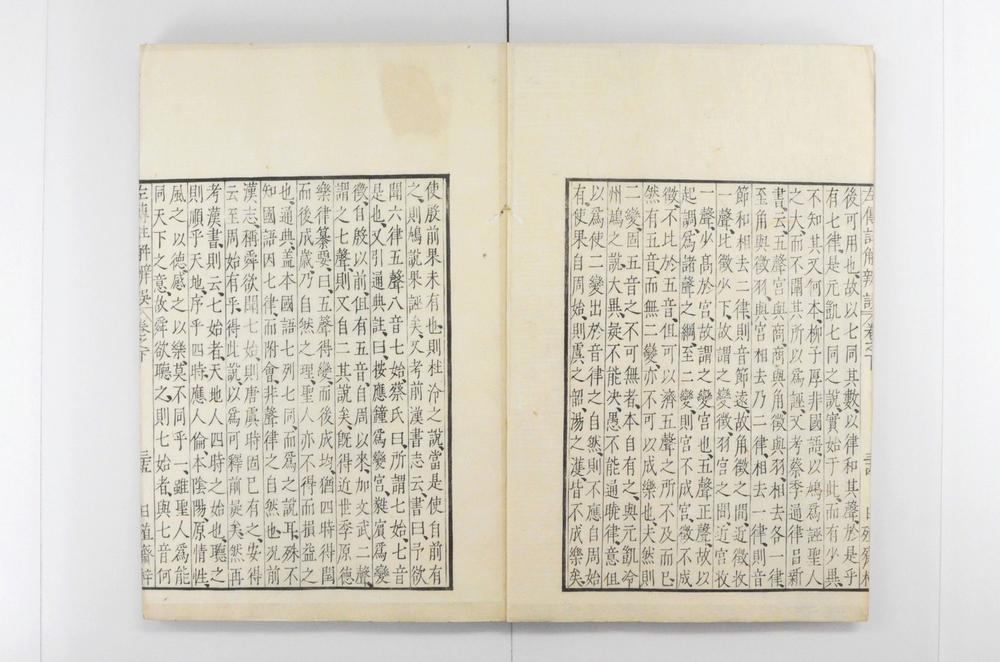 左傳註解辨誤 卷之下 日殖齋梓
後可用也故以七同其數以律和其聲於是乎
有七律是元凱七同之說實始于此而有少異
不知其又何本柳子厚非國語以鳩爲誣聖人
之大而不聞其所以爲誣又考蔡季通律呂新
書云五聲宮與商商與角徵與羽相去各一律
至角與徵羽與宮相去乃二律相去一律則音
節和相去二律則音節遠故角徵之間近徵收
一聲比徵少下故謂之變徵羽宮之間近宮收
一聲少高於宮故謂之變宮也五聲正聲故以
起調爲諸聲之綱至二變則宮不成宮徵不成
徵不比於五音但可以濟五聲之所不及而已
然有五音而無二變亦不可以成樂也夫然則
二變固五音之不可無者本自有之與元凱冷
州鳩之說大異疑不能決愚不能通曉律意但
以爲使二變出於音律之自然則不應自周始
有使果自周始則虞之韶湯之濩皆不成樂矣
使殷前果未有也則杜泠之說當是使自前有
之則鳩說果誣矣又考前漢書志云書曰予欲
聞六律五聲八音七始蔡氏曰所謂七始七音
是也又引通典註曰按應鐘爲變宮蕤賓爲變
徵自殷以前但有五音自周以來加文武二聲
謂之七聲則又自二其說矣旣得近世季原德
樂律纂要曰五聲得變而後成均猶四時得閏
而後成歲乃自然之理聖人亦不得而損益之
也通典盖本國語七列七同而爲之說耳殊不
知國語因七律而附會非聲律之自然也況
漢志稱舜欲聞七始則唐虞時固已有之安得
云至周始有乎得此說以爲可釋前疑矣然再
考漢書則云七始者天地人四時之始也聽之
則順乎天地序乎四時應人倫本陰陽原情性
風之以德感之以樂莫不同乎一雖聖人爲能
同天下之意故舜欲聽之則七始者與七音何
左傳註解辨誤 卷之下 日殖齋梓